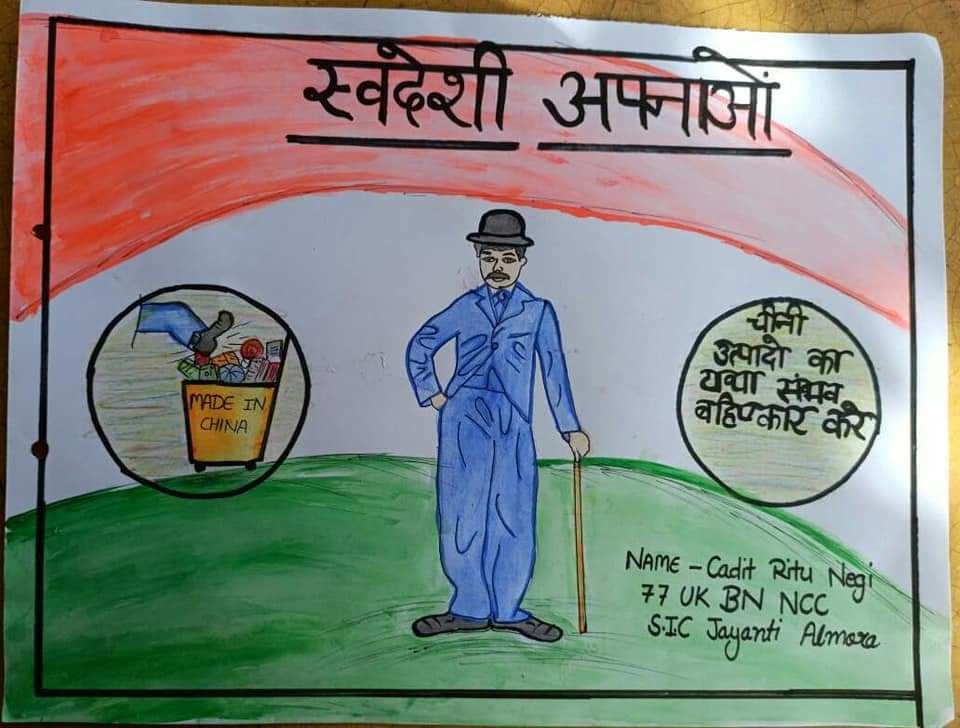 स्वदेशी अपनाओं
MADE IN
CHINA
चीनी
उत्पादो का
यथा संभव
बहिष्कार करे
NAME - Cadit Ritu Negi
77 UK BN NCC
S.I.C Jayanti Almora